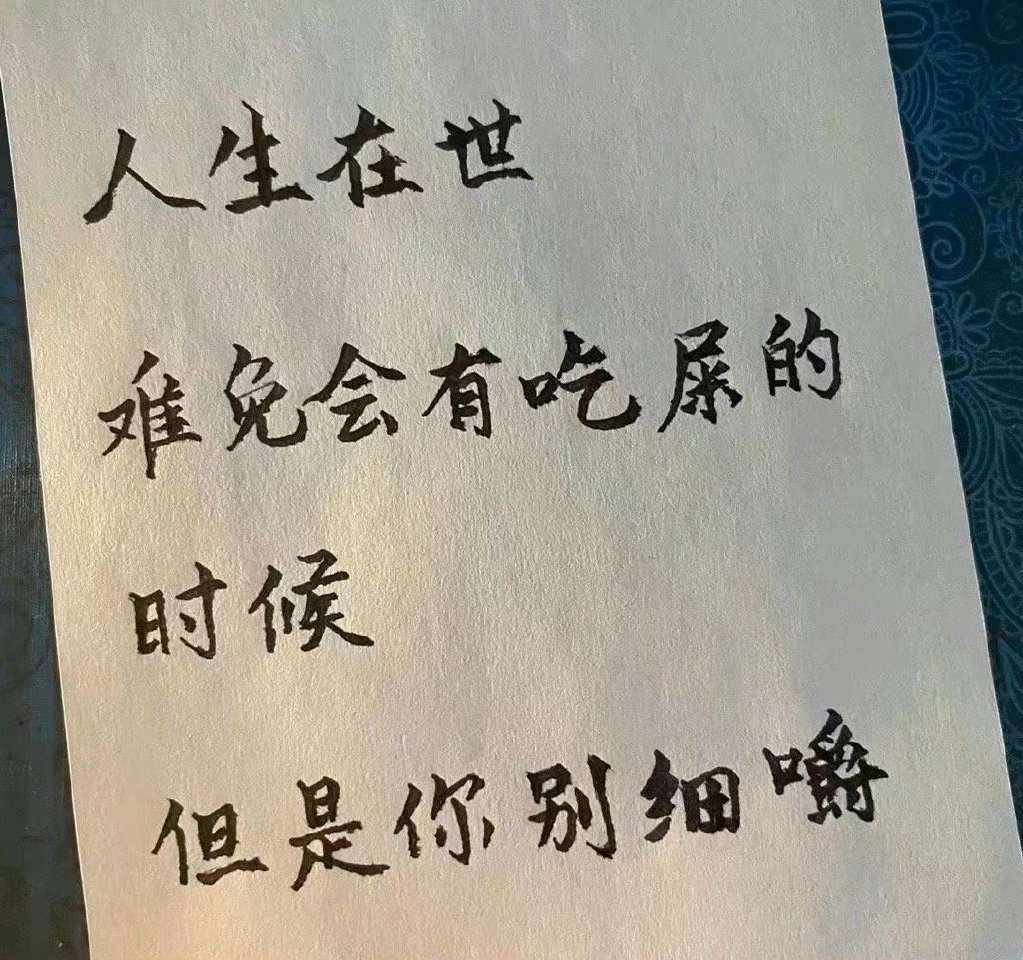 人生在世
难免会有吃屎的
时候
但是你别细嚼